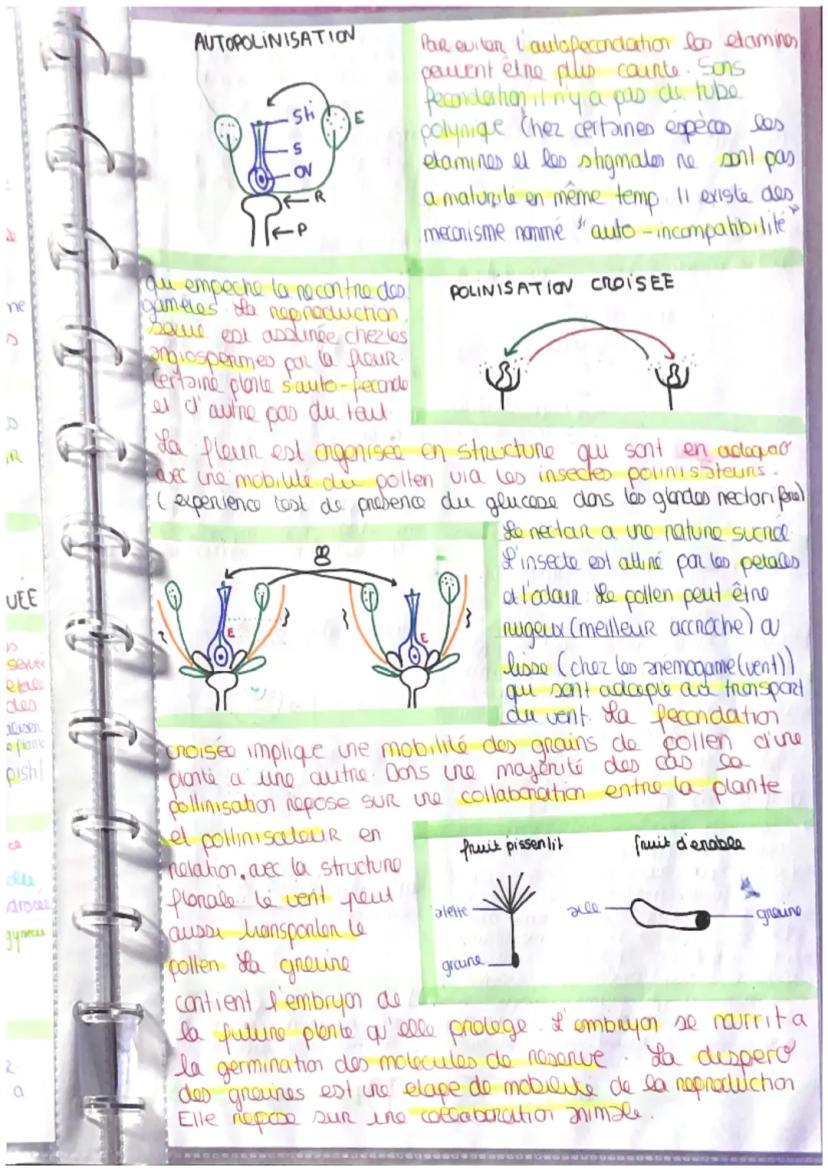 AUTOPOLINISATION
Sti
E
S
OV
R
P
Par eviter l'autofecondation les etamines
peuvent être plus courte. Sans
fecondation il n'y a pas de tube
polynique Chez certaines espèces les
etamines et les stigmates ne sont pas
a maturité en même temp. Il existe des
mecanisme nommé "auto-incompatibilité"
qui empeche la recontre des
gametes. La reproduction
sexue est assurée chez les
angiospermes par la fleur.
Certaine plante s'auto-feconde
et d'autre pas du tout.
POLINISATION CROISEE
La fleur est organisée en structure qui sont en adequa°
avec une mobilité du pollen via les insectes polinisateurs.
(experience test de presence du glucose dans les glandes nectarifère)
E
E
Le nectar a une nature sucrée
L'insecte est attiré par les petales
et l'odeur. Le pollen peut être
rugeux (meilleur accroche) ou
lisse (chez les anémogame (vent))
qui sont adapté au transport
du vent. La fecondation
croisée implique une mobilité des grains de pollen d'une
plante a une autre. Dans une majorité des cas la
pollinisation repose sur une collaboration entre la plante
et pollinisateur en
relation avec la structure
florale. le vent peut
aussi transporter le
pollen La graine
contient l'embryon de
fruit pissenlit
fruit d'erable
alette
aile
graine
graine
la future plante qu'elle protege. L'embryon se nourrit a
la germination des molecules de reserve. La dispers°
des graines est une etape de mobilité de la reproduction
Elle repose sur une collaboration animale.
UEE
pish